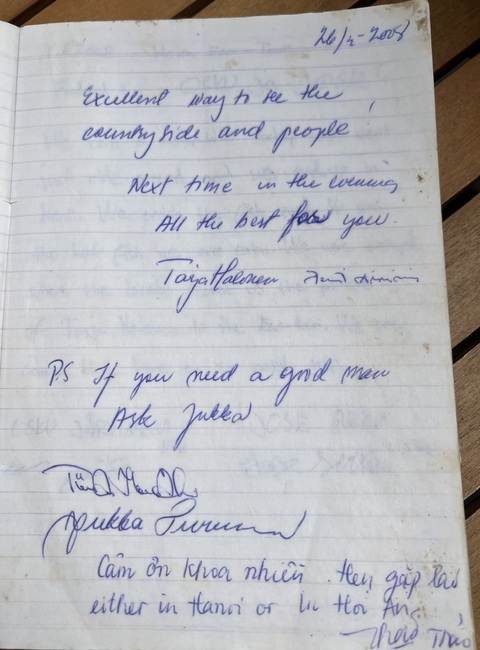 26/2-2008
Excellent way to see the
countryside and people,
Next time in the evening
All the best for you.
Tarja Halonen
P.S If you need a good man
Ask Jukka
Jukka
Cảm ơn khoa nhiều. Hẹn gặp lại
either in Hanoi or in Hoi An,
Thảo